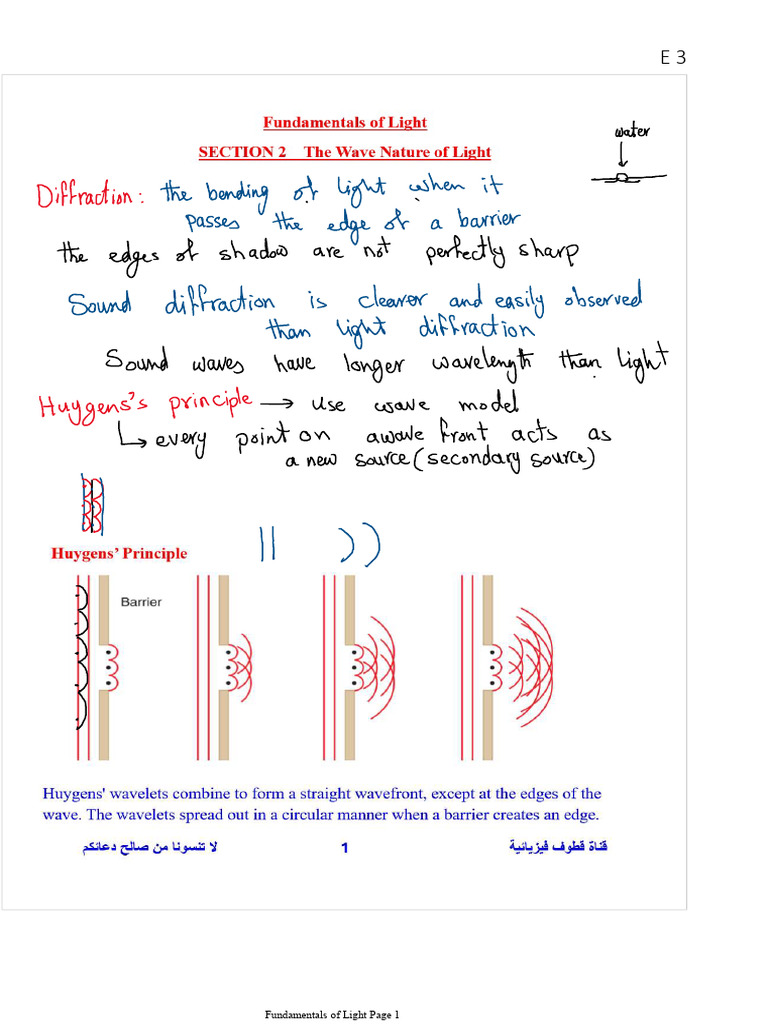 E 3
Fundamentals of Light
SECTION 2 The Wave Nature of Light
water
Diffraction: the bending of light when it
passes the edge of a barrier
the edges of shadow are not perfectly sharp
Sound diffraction is clearer and easily observed
than light diffraction
Sound waves have longer wavelength than light
Huygens's principle → use wave model
↳ every point on a wave front acts as
a new source (secondary source)
Huygens' Principle
Barrier
Huygens' wavelets combine to form a straight wavefront, except at the edges of the
wave. The wavelets spread out in a circular manner when a barrier creates an edge.
قناة قطوف فيزيائية 1 لا تنسونا من صالح دعائكم
Fundamentals of Light Page 1